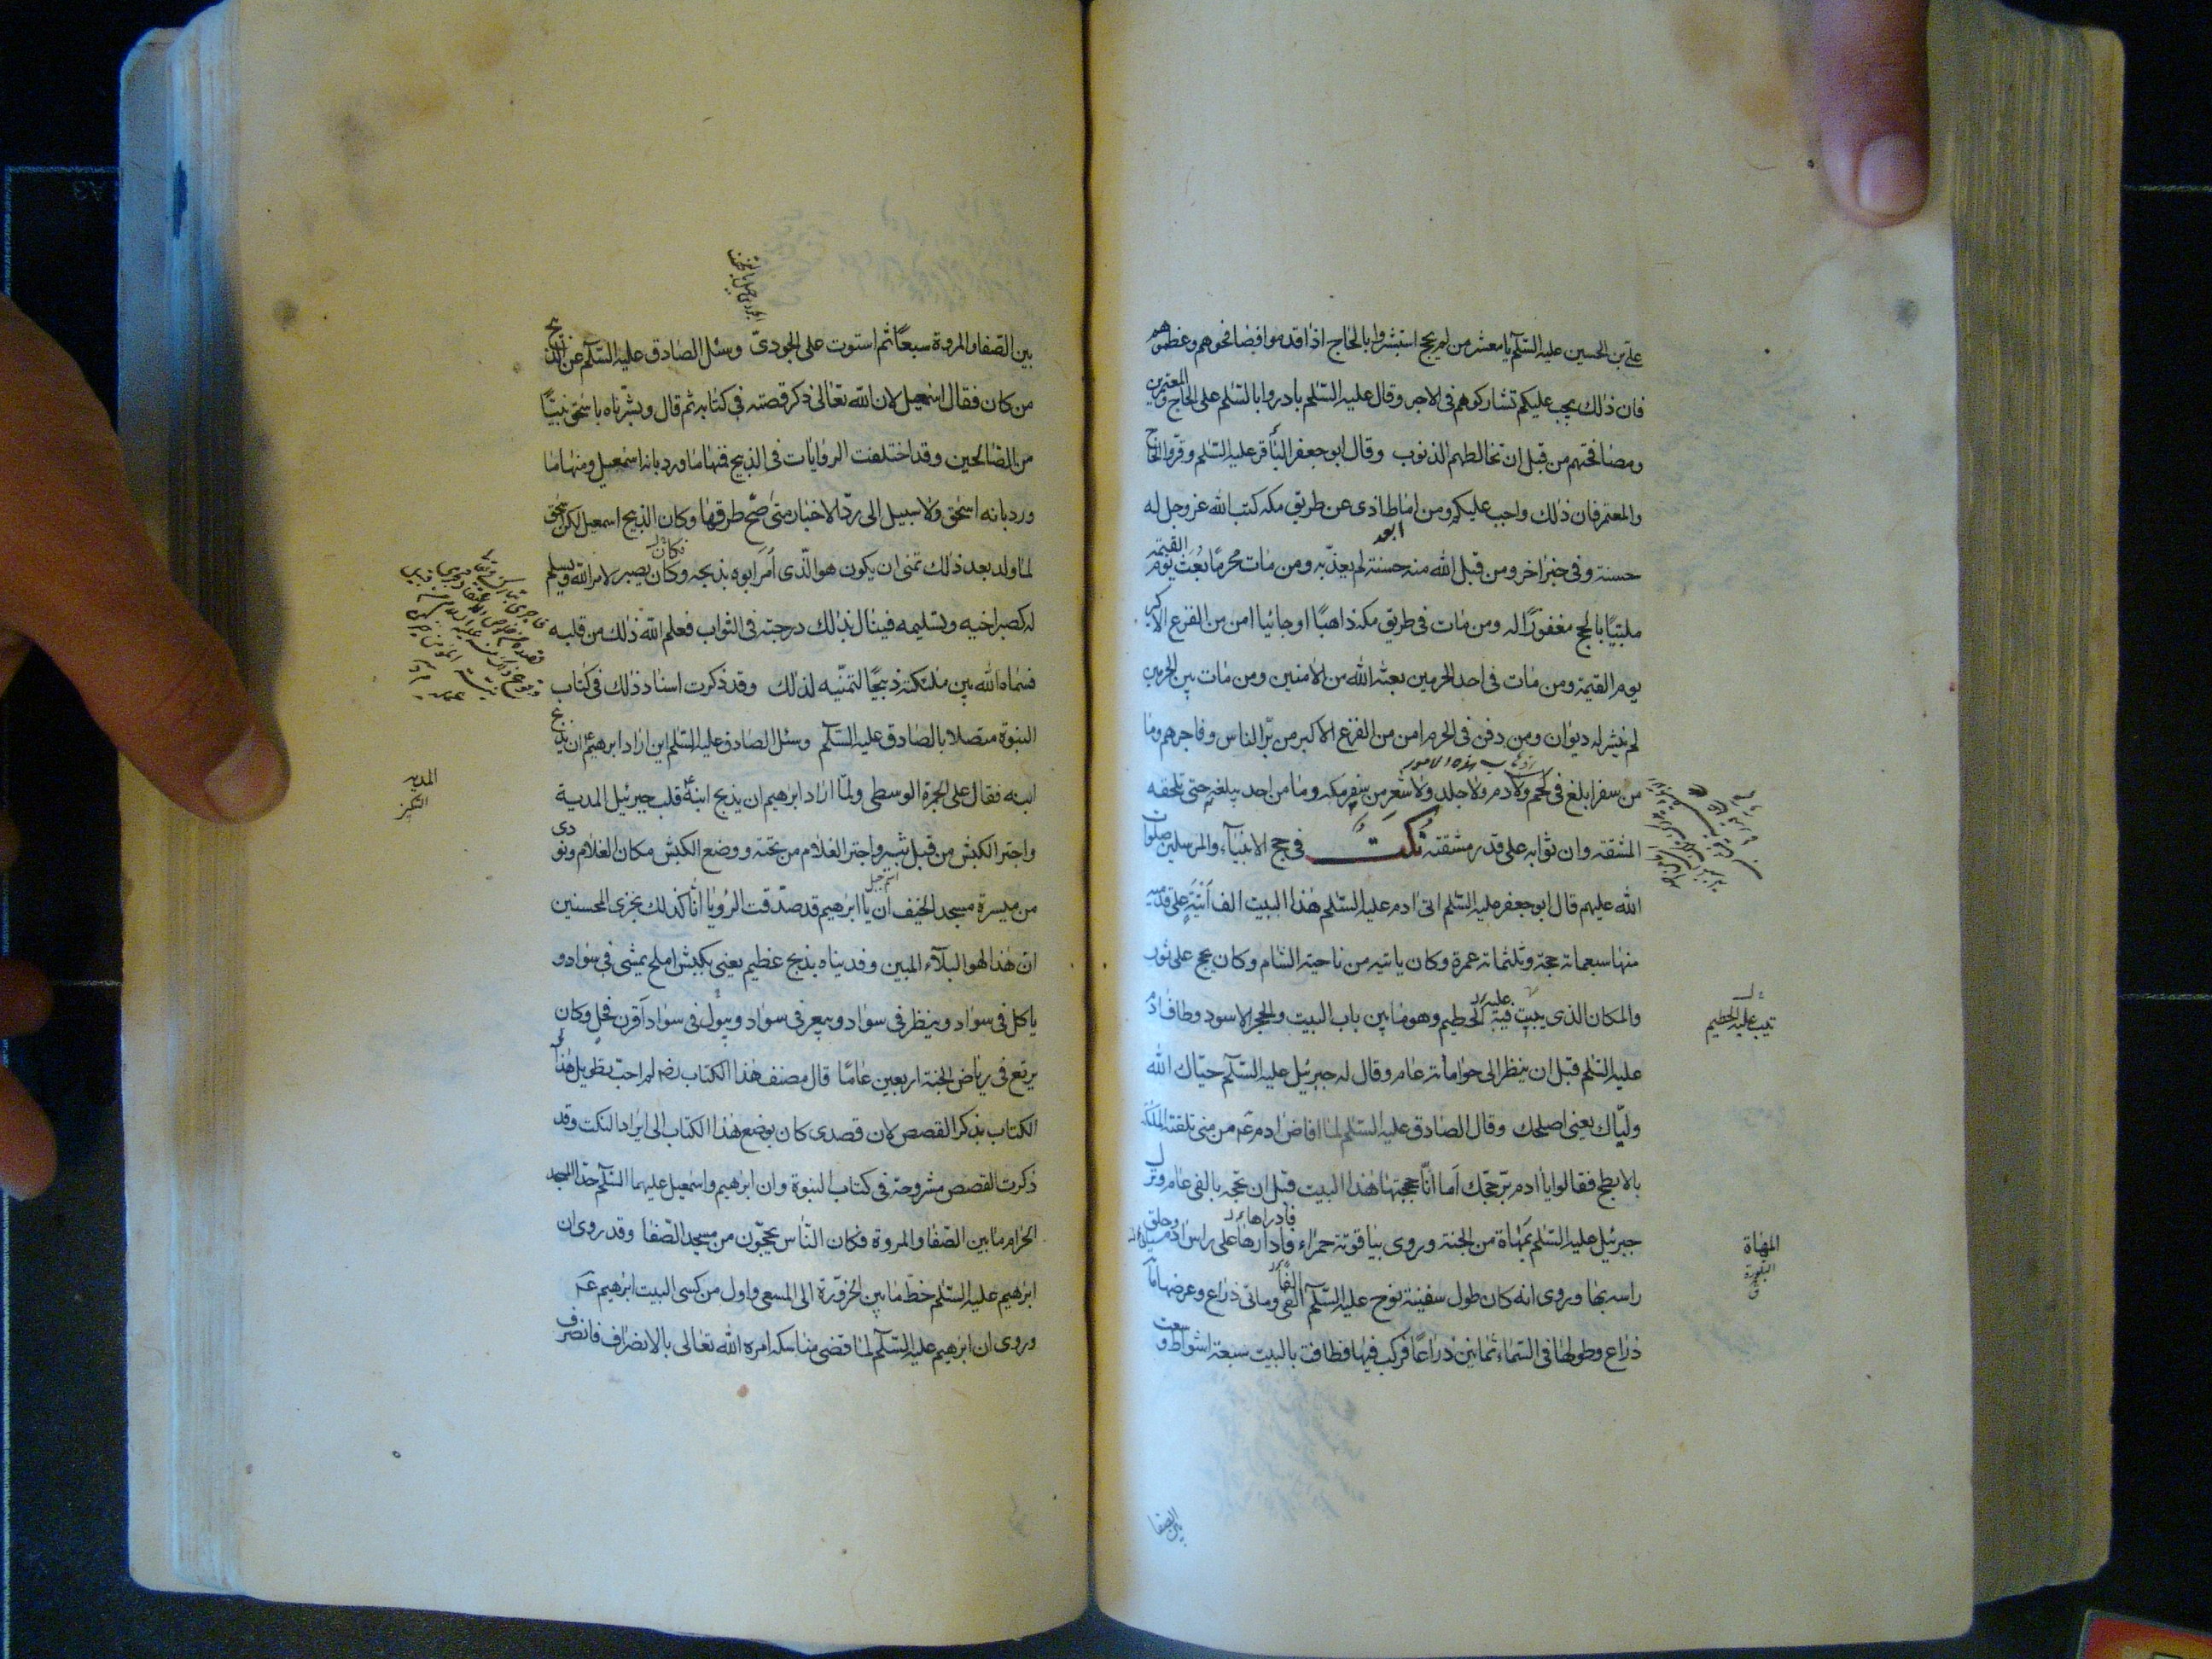 علي بن الحسين عليه السلم يا معشر من لم يحج استبشروا بالحاج اذا قدموا فصافحوهم وعظموهم
فان ذلك يجب عليكم تشاركوهم في الاجر وقال عليه السلم بادروا بالسلم على الحاج والمعتمرين
ومصافحتهم من قبل ان تخالطهم الذنوب وقال ابو جعفر الباقر عليه السلم وقروا الحاج
والمعتمر فان ذلك واجب عليكم ومن اماط اذى عن طريق مكه كتب الله عز وجل له
حسنة وفى خبر اخر ومن قبل الله منه حسنة لم يعذبه ومن مات محرما بعث يوم القيمة
ملبيا بالحج مغفورا له ومن مات في طريق مكه ذاهبا او جائيا امن من الفزع الاكبر
يوم القيمة ومن مات في احد الحرمين بعثه الله من الامنين ومن مات بين الحرمين
لم ينشر له ديوان ومن دفن في الحرم امن من الفزع الاكبر من بر الناس وفاجرهم وما
من سفر ابلغ في لحم ولا دم ولا جلد ولا شعر من سفر مكه وما من احد يبلغه حتى تلحقه
المشقه وان ثوابه على قدر مشقته نكت في حج الانبياء والمرسلين صلوات
الله عليهم قال ابو جعفر عليه السلم اتى ادم عليه السلم هذا البيت الف اتية على قدميه
منها سبعمائه حجة وثلثمائه عمرة وكان ياتيه من ناحية الشام وكان يحج على ثور
والمكان الذى يبيت فيه الحطيم وهو ما بين باب البيت والحجر الاسود وطاف ادم
عليه السلم قبل ان ينظر الى حوا مائه عام وقال له جبرئيل عليه السلم حياك الله
ولبّاك يعنى اصلحك وقال الصادق عليه السلم لما افاض ادم عم من منى تلقته الملئكة
بالابطح فقالوا يا ادم بر حجك اما انا حججنا هذا البيت قبل ان تحجه بالفى عام ونزل
جبرئيل عليه السلم بمهاة من الجنة وروى بياقوتة حمراء فادارها على راس ادم وحلق
راسه بها وروى انه كان طول سفينة نوح عليه السلم الفى ومائى ذراع وعرضها مائه
ذراع وطولها في السماء ثمانين ذراعا فركب فيها فطافت بالبيت سبعة اشواط وسعت
المهاة
البلورة
ق
بين الصفا
بين الصفا والمروة سبعا ثم استوت على الجودى وسئل الصادق عليه السلم عن الذبيح
من كان فقال اسمعيل لان الله تعالى ذكر قصته في كتابه ثم قال وبشرناه باسحق نبيا
من الصالحين وقد اختلفت الروايات في الذبيح فمنها ما ورد بانه اسمعيل ومنها ما
ورد بانه اسحق ولا سبيل الى رد الاخبار متى صح طرقها وكان الذبيح اسمعيل لكن اسحق
لما ولد بعد ذلك تمنى ان يكون هو الذى امر ابوه بذبحه وكان يصبر لامر الله ويسلم
له كصبر اخيه وتسليمه فينال بذلك درجته في الثواب فعلم الله ذلك من قلبه
فسماه الله بين ملئكته ذبيحا لتمنيه لذلك وقد ذكرت اسناد ذلك في كتاب
النبوة متصلا بالصادق عليه السلم وسئل الصادق عليه السلم اين اراد ابرهيم ان يذبح
ابنه فقال على الجمرة الوسطى ولما اراد ابرهيم ان يذبح ابنه قلب جبرئيل المدية
واجتر الكبش من قبل ثبير واجتر الغلام من تحته ووضع الكبش مكان الغلام ونودى
من ميسرة مسجد الخيف ان يا ابرهيم قد صدقت الرؤيا انا كذلك نجزى المحسنين
ان هذا لهو البلاء المبين وفديناه بذبح عظيم يعنى بكبش املح يمشى في سواد و
ياكل في سواد وينظر في سواد ويبعر في سواد ويبول في سواد اقرن فحل وكان
يرتع في رياض الجنة اربعين عاما قال مصنف هذا الكتاب رضه لم احب تطويل هذا
الكتاب بذكر القصص لان قصدى كان بوضع هذا الكتاب الى ايراد النكت وقد
ذكرت القصص مشروحة في كتاب النبوة وان ابرهيم واسمعيل عليهما السلم حدا المسجد
الحرام ما بين الصفا والمروة فكان الناس يحجون من مسجد الصفا وقد روى ان
ابرهيم عليه السلم خط ما بين الحزورة الى المسعى واول من كسى البيت ابرهيم عم
وروى ان ابرهيم عليه السلم لما قضى مناسكه امره الله تعالى بالانصراف فانصرف